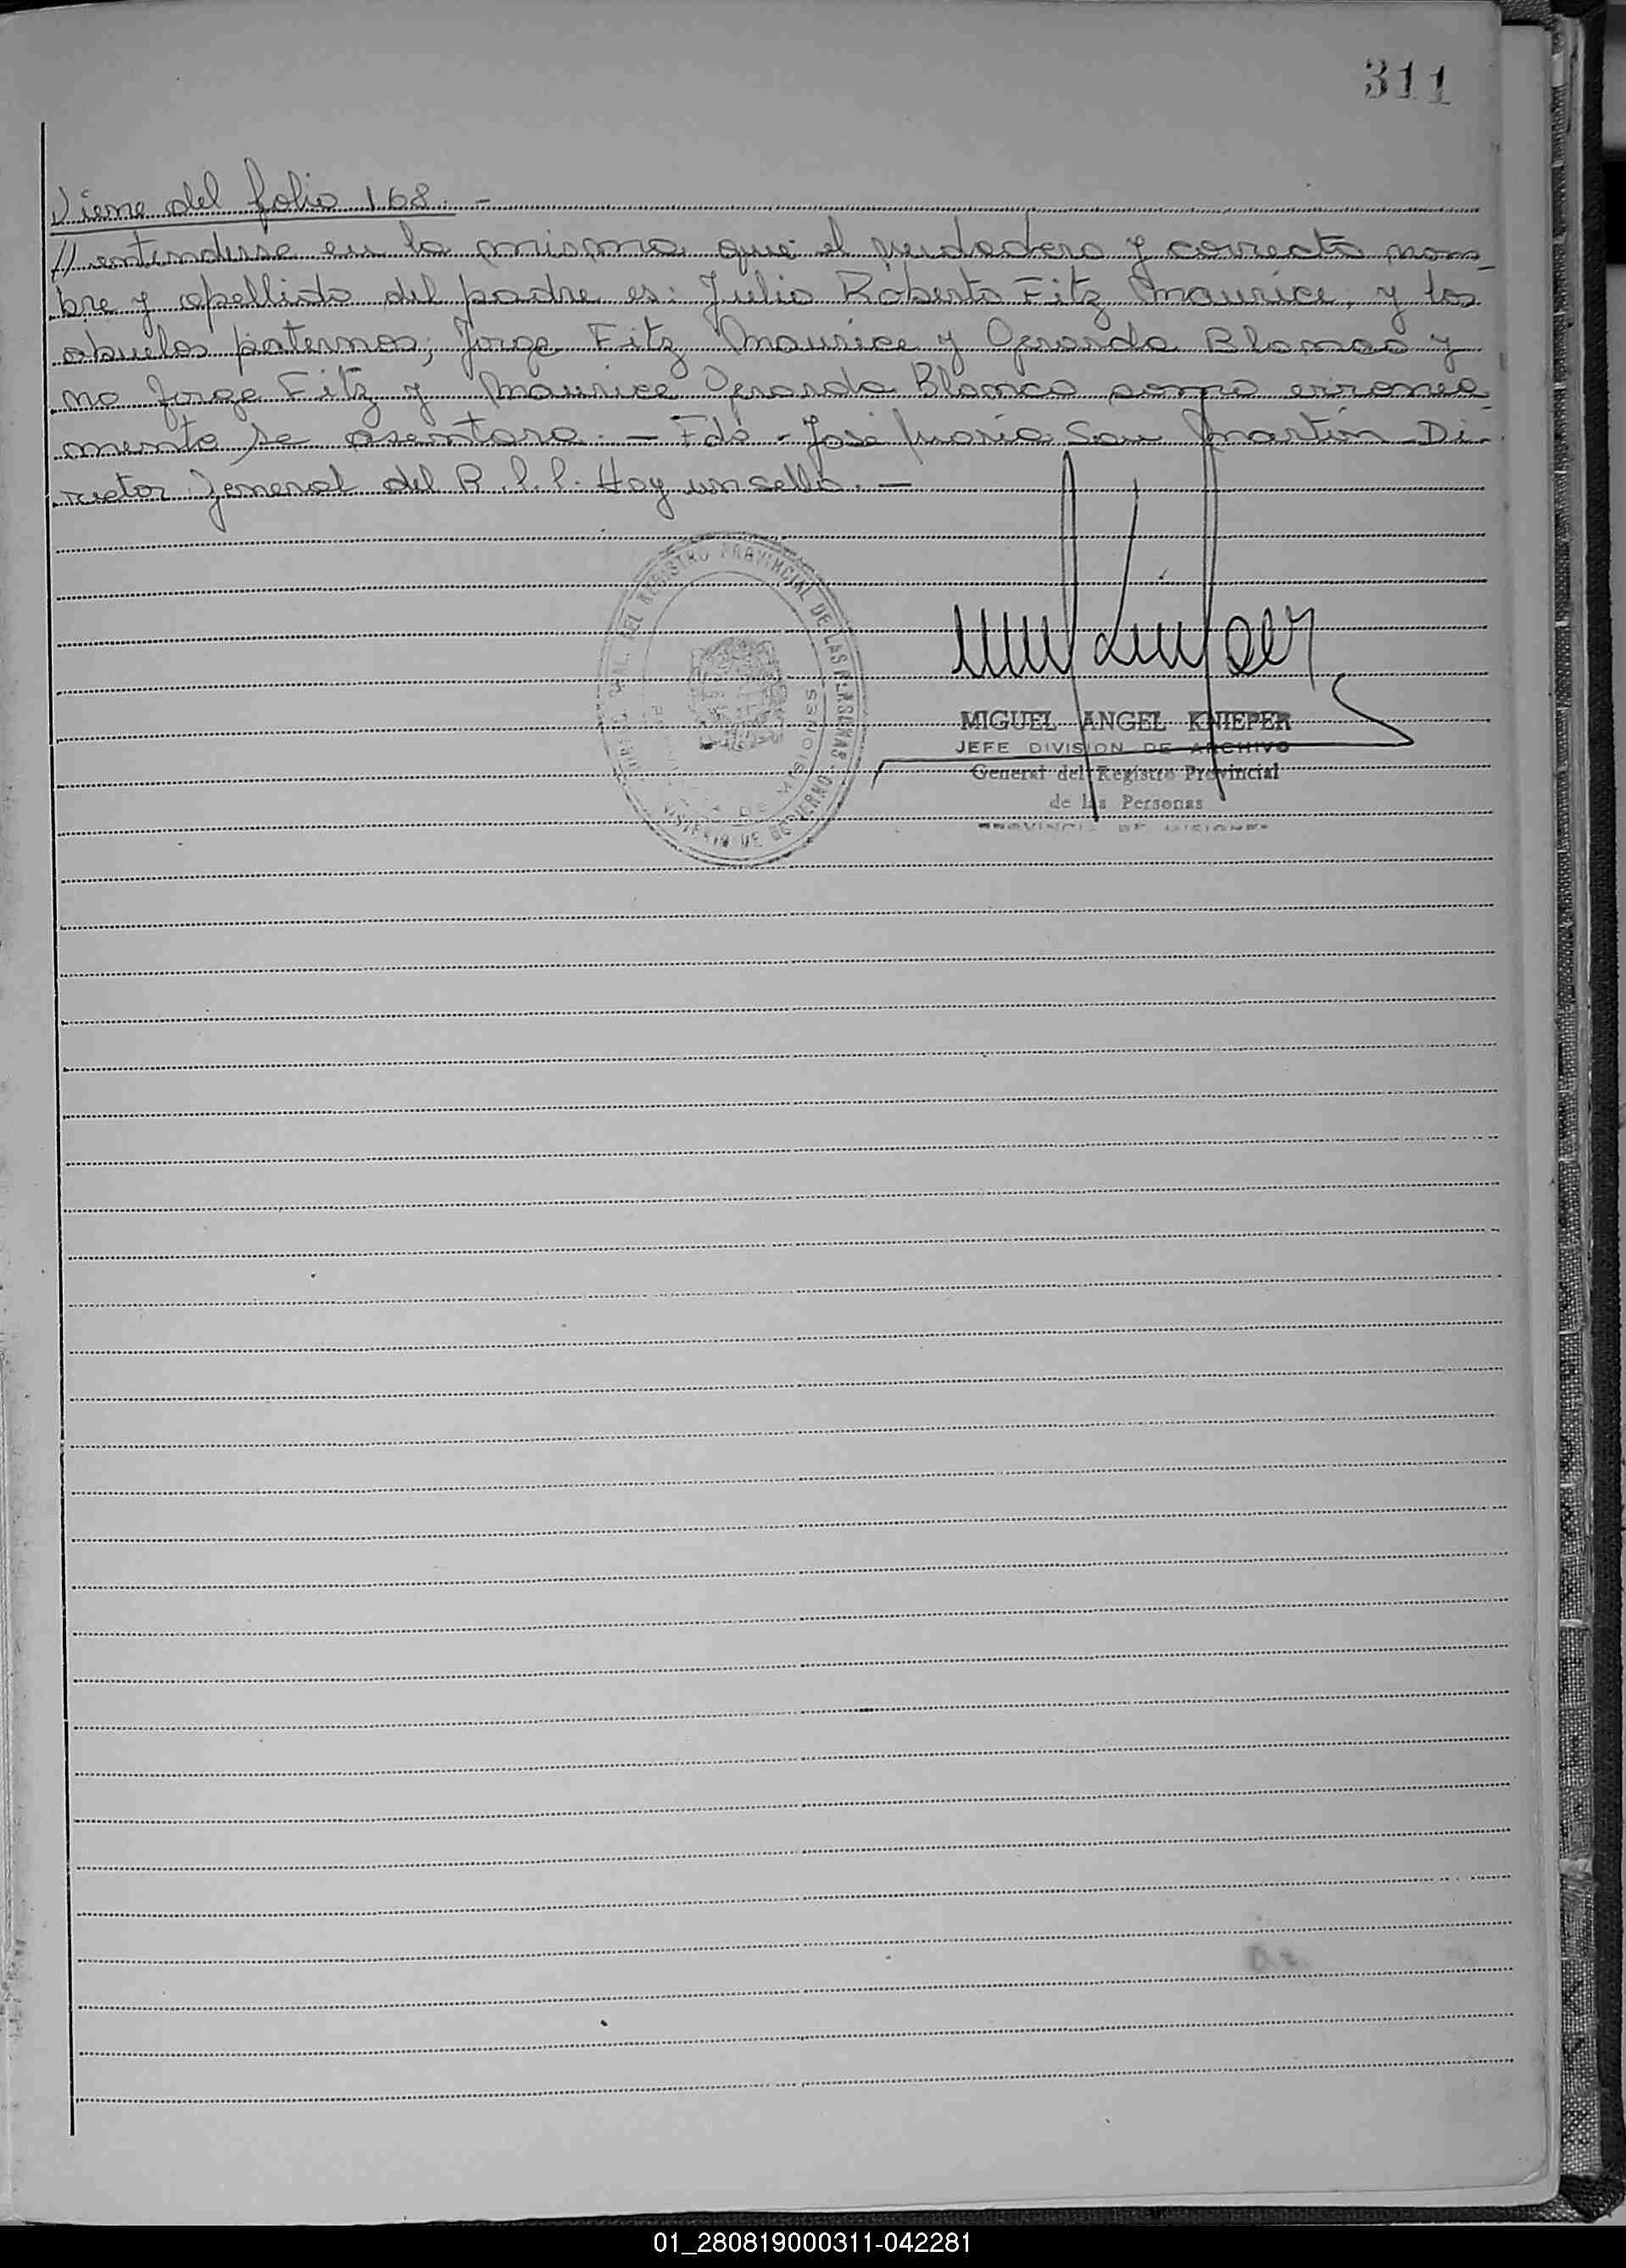 311
Viene del folio 168. -
// entenderse en la misma que el verdadero y correcto nom-
bre y apellido del padre es: Julio Roberto Fitz Maurice, y los
abuelos paternos; Jorge Fitz Maurice y Gerarda Blanco y
no Jorge Fitz y Maurice Gerarda Blanco como erronea-
mente se asentara. - Fdo - José María San Martín - Di-
rector General del R.P.P. Hay un sello. -
DEL REGISTRO PROVINCIAL DE LAS PERSONAS
MINISTERIO DE GOBIERNO
DE MISIONES
MIGUEL ANGEL KNIEPER
JEFE DIVISION DE ARCHIVO
General del Registro Provincial
de las Personas
PROVINCIA DE MISIONES
01_280819000311-042281